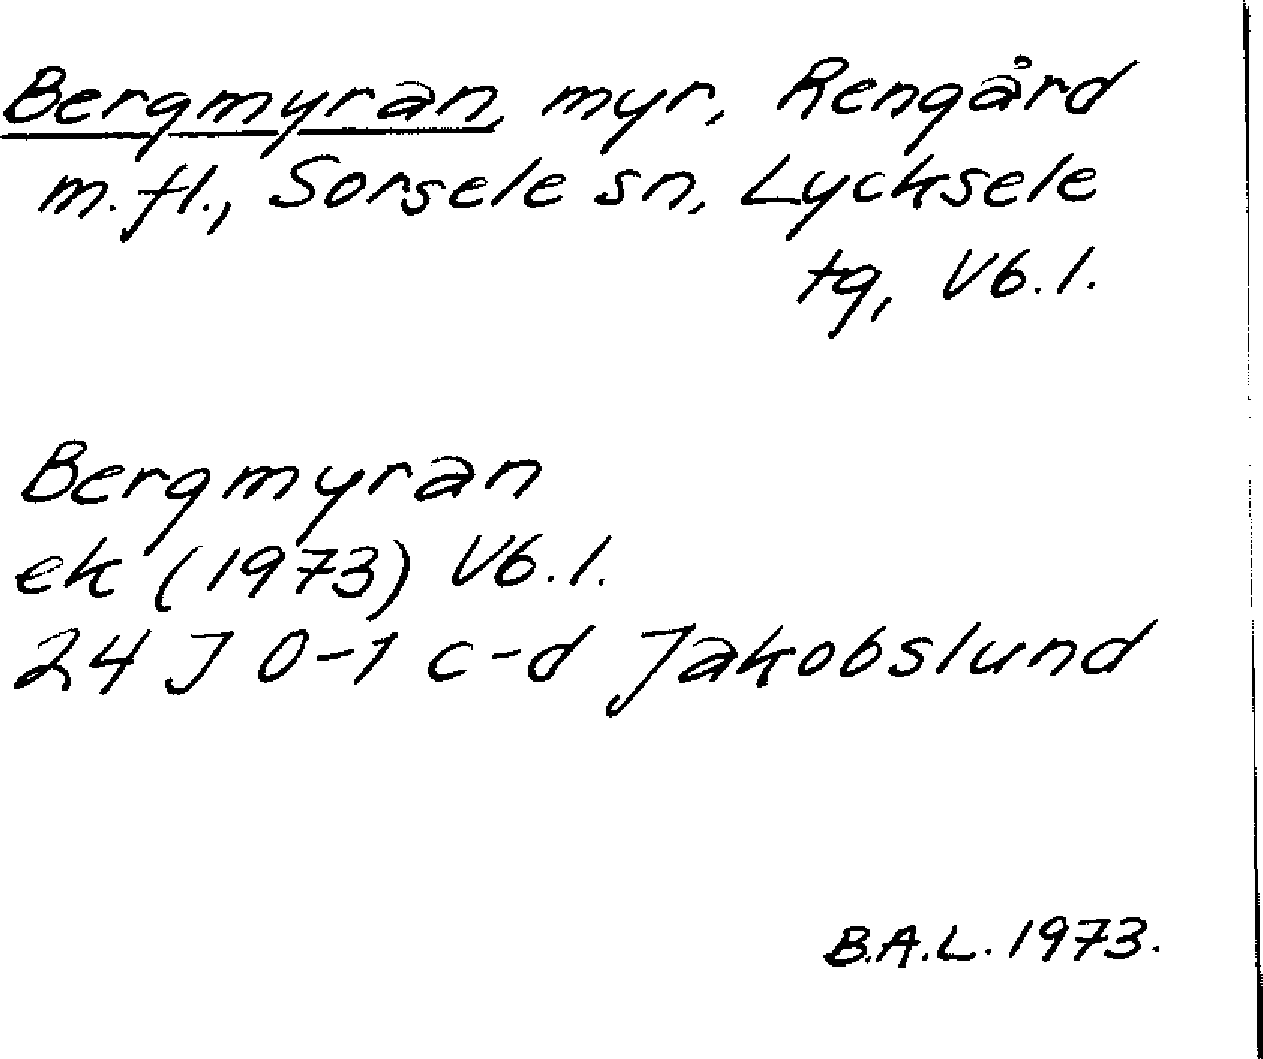 Bergmyran, myr, Rengård
m.fl., Sorsele sn, Lycksele
tg, Vb.l.
Bergmyran
ek (1973) Vb.l.
24 J 0-1 c-d Jakobslund
B.A.L. 1973.